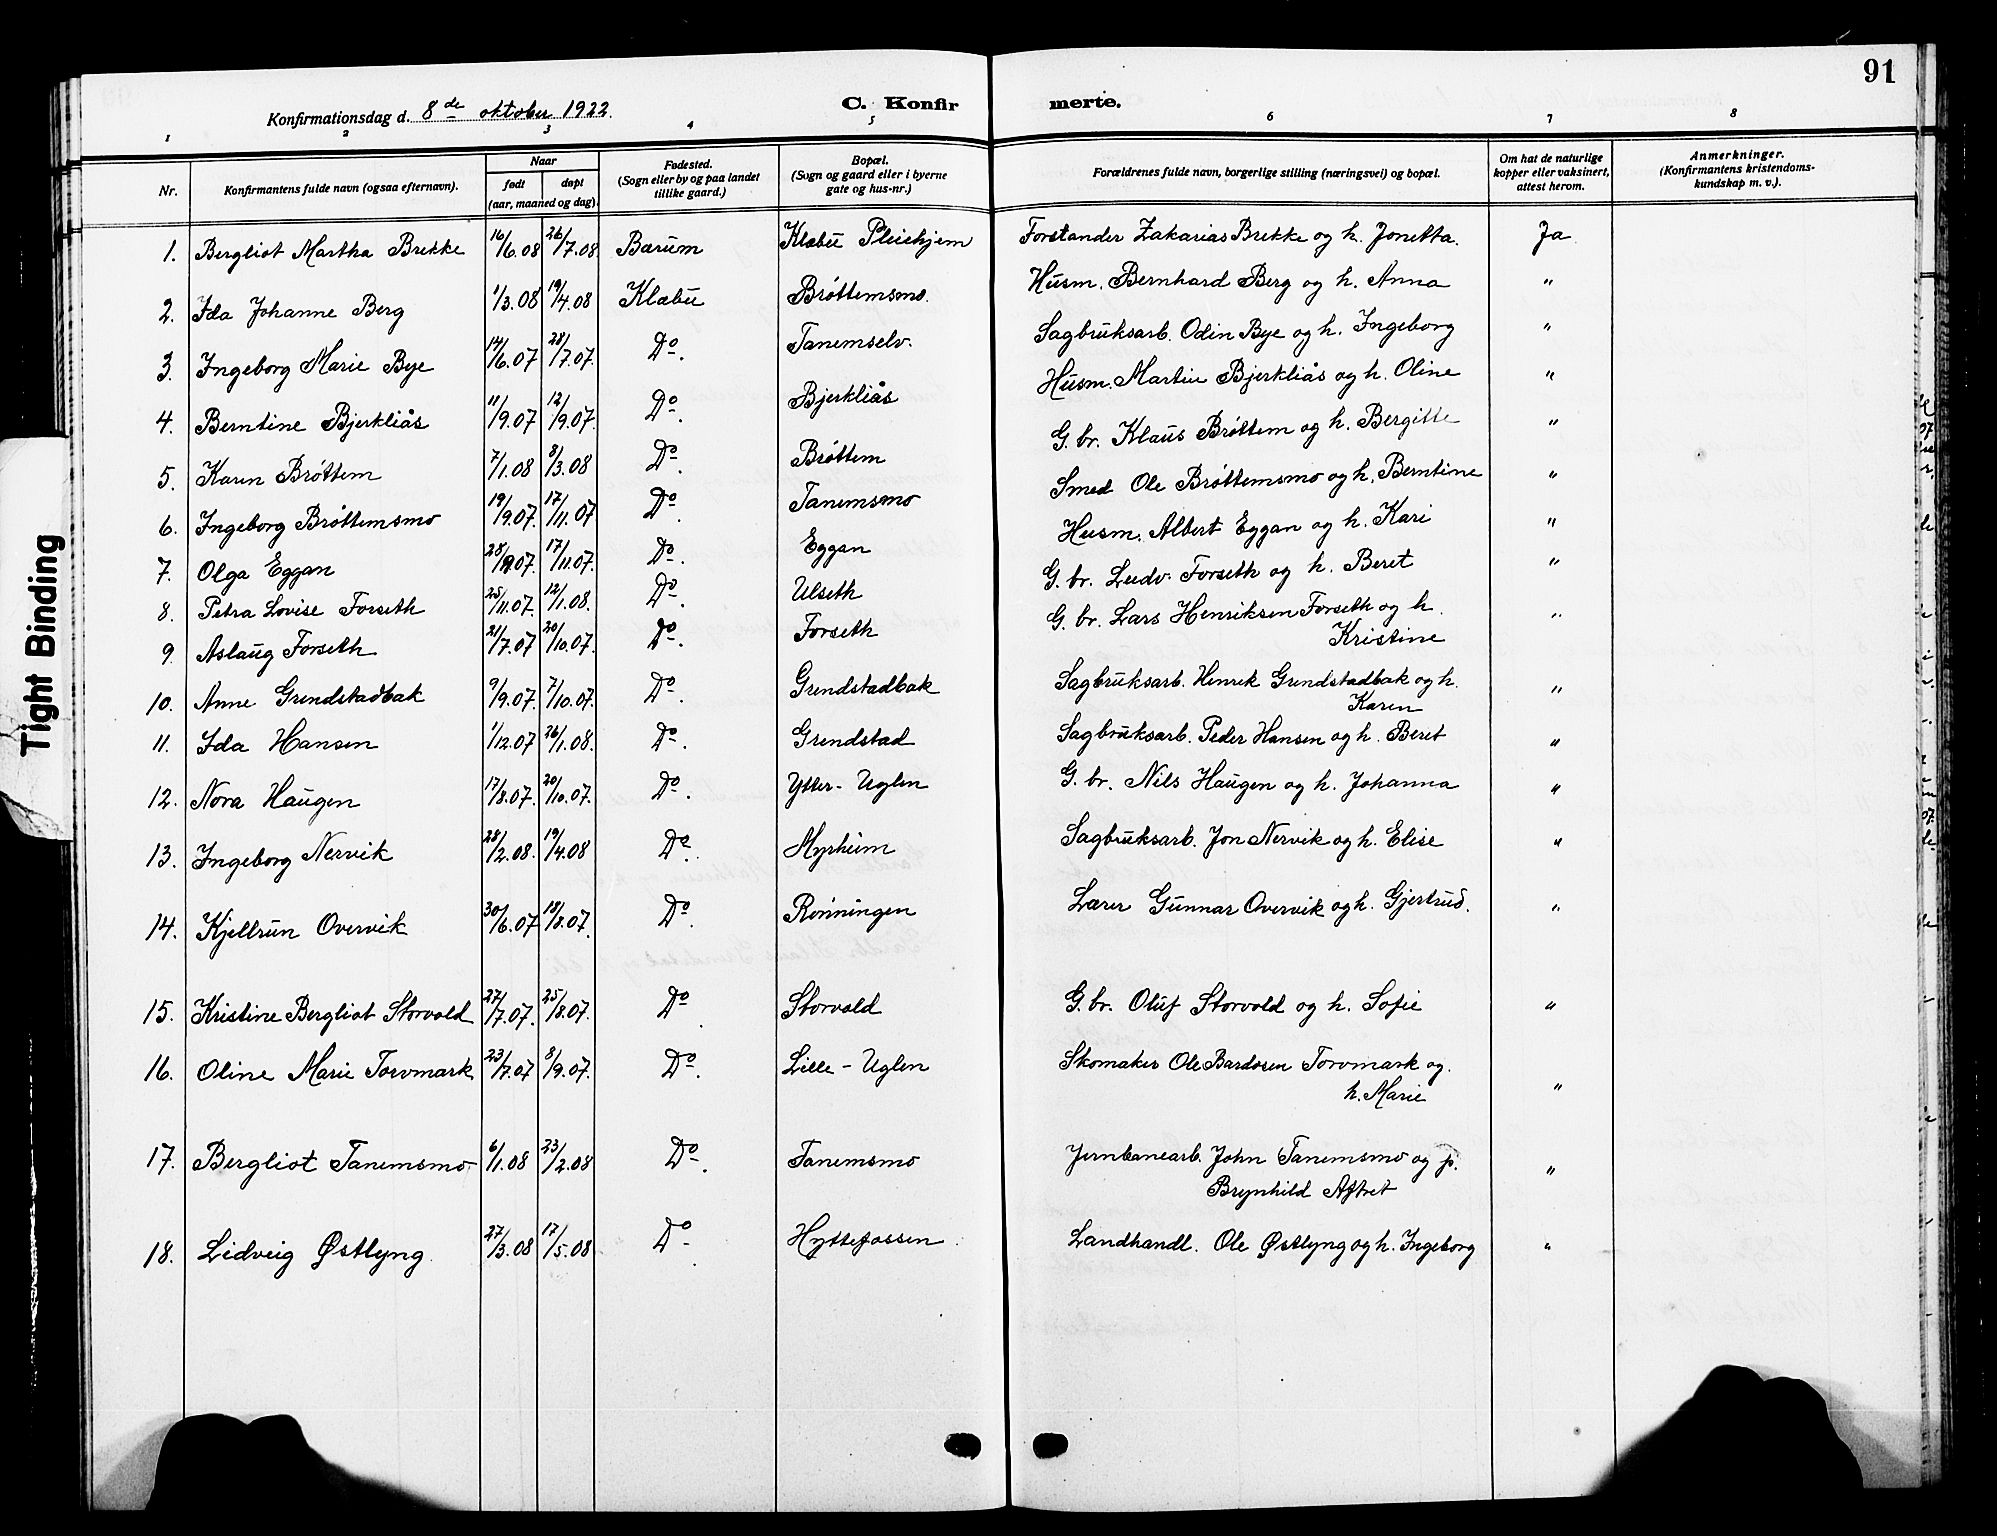 91
Konfirmationsdag d. 8de oktober 1922.
C. Konfirmerte.
1 2 3 4 5 6 7 8
Nr. | Konfirmantens fulde navn (ogsaa efternavn). | Naar født døpt (aar, maaned og dag). | Fødested. (Sogn eller by og paa landet tillike gaard.) | Bopæl. (Sogn og gaard eller i byerne gate og hus-nr.) | Forældrenes fulde navn, borgerlige stilling (næringsvei) og bopæl. | Om hat de naturlige kopper eller vaksinert, attest herom. | Anmerkninger. (Konfirmantens kristendoms-kundskap m. v.).
1. Bergliot Martha Brekke 16/6.08 26/7.08 Bærum Klæbu Pleiehjem Forstander Zakarias Brekke og h. Jonetta. Ja
2. Ida Johanne Berg 1/3.08 19/4.08 Klæbu Brøttemsmo. Husm. Bernhard Berg og h. Anna "
3. Ingeborg Marie Bye 14/6.07 28/7.07. Do. Tanemselv. Sagbruksarb. Odin Bye og h. Ingeborg "
4. Berntine Bjerkliås 11/9.07 12/9.07. Do. Bjerkliås Husm. Martin Bjerkliås og h. Oline "
5. Karen Brøttem 7/1.08 8/3.08 Do. Brøttem G. br. Klaus Brøttem og h. Bergitte "
6. Ingeborg Brøttemsmo 19/9.07. 17/11.07 Do. Tanemsmo Smed Ole Brøttemsmo og h. Berntine "
7. Olga Eggan 17/11.07. Do. Eggan Husm. Albert Eggan og h. Kari "
8. Petra Lovise Forseth 25/11.07. 12/1.08. Do. Ulseth G. br. Ludv. Forseth og h. Beret "
9. Aslaug Forseth 21/7.07 20/10.07. Do. Forseth G. br. Lars Henriksen Forseth og h. "
Kristine
10. Anne Grendstadbak 9/9.07 7/10.07. Do. Grendstadbak Sagbruksarb. Henrik Grendstadbak og h. "
Karen
11. Ida Hansen 1/12.07 26/1.08. Do. Grendstad Sagbruksarb. Peder Hansen og h. Beret "
12. Nora Haugen 17/8.07. 20/10.07. Do. Ytter-Uglen G. br. Nils Haugen og h. Johanna "
13. Ingeborg Nervik 28/2.08. 19/4.08 Do. Myrheim Sagbruksarb. Jon Nervik og h. Elise "
14. Kjellrun Overvik 30/6.07 18/8.07. Do. Rønningen Lærer Gunnar Overvik og h. Gjertrud. "
15. Kristine Bergliot Storvold 27/7.07. 25/8.07. Do. Storvold G. br. Oluf Storvold og h. Sofie "
16. Oline Marie Torvmark 23/7.07 8/9.07. Do. Lille-Uglen Skomaker Ole Bardosen Torvmark og
h. Marie "
17. Bergliot Tanemsmo 6/1.08 23/2.08 Do. Tanemsmo Jernbanearb. John Tanemsmo og p. "
Brynhild Aftret
18. Lidveig Østlyng 27/3.08 17/5.08 Do. Hyttefossen Landhandl. Ole Østlyng og h. Ingeborg "
Tight Binding